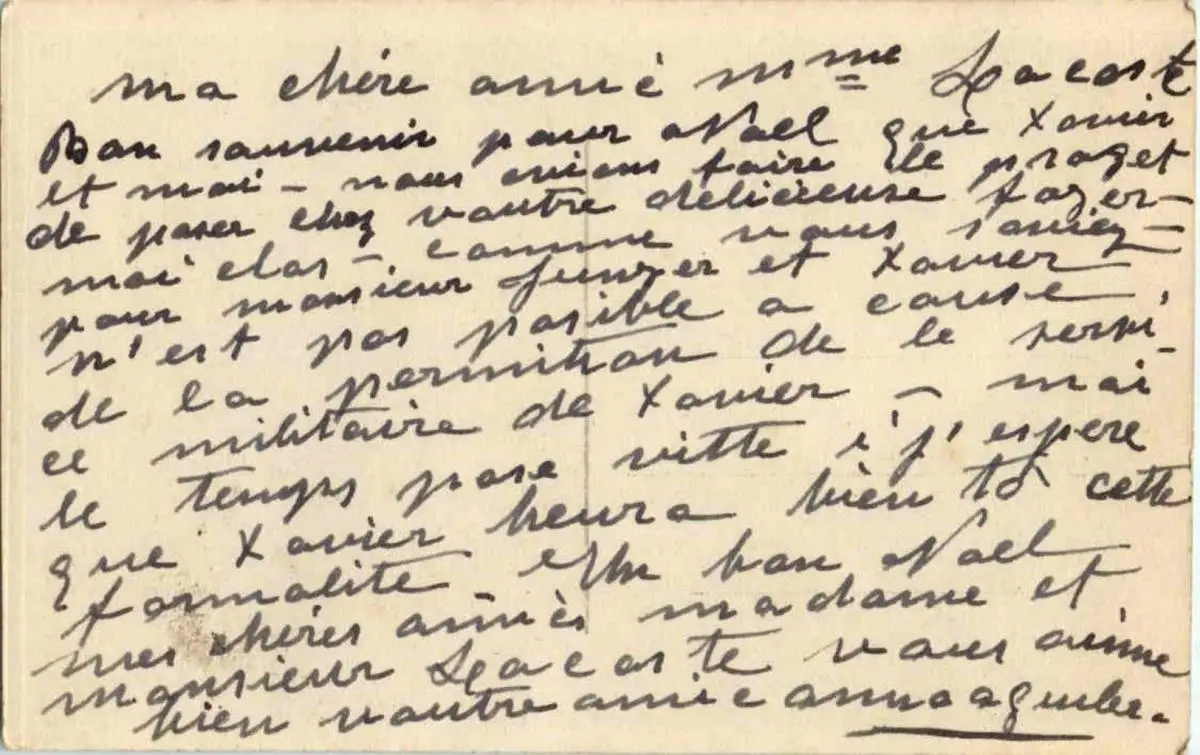 ma chére amié Mme Lacoste
Bon souvenir pour Noel que Xavier
et moi - nous avions faire le proget
de paser chez vautre délicieuse foyer-
mai elas - comme vous saviez -
pour monsieur et Xavier
n'est pas posible a cause
de la permition de le servi-
ce militaire de Xavier - mai
le temps pase vitte i j'espere
que Xavier heura bien tò cette
formalite Un bon Noel
mes chéres amiés madame et
monsieur Lacoste vous aimme
bien vautre amie anna